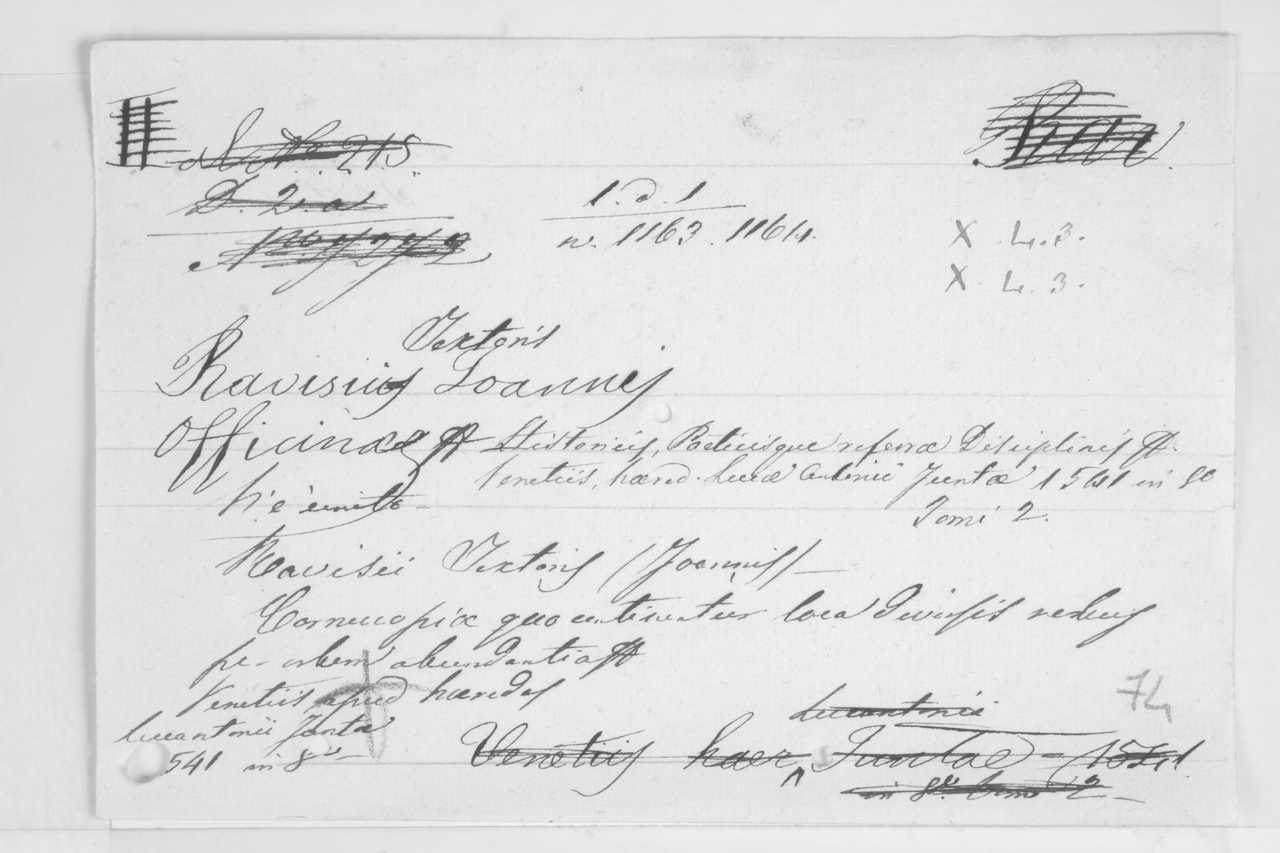 215
D. 2. a
1. d. 1
n. 1163. 1164.
X. 4. 3.
X. 4. 3.
Textoris
Ravisius Joannes
Officinae Historicis, Poeticisque refertae Disciplinis
Venetiis, haered. Lucae Antonii Juntae 1541 in 8o
Tomi 2.
v'è unito
Ravisii Textoris (Joannis)
Cornucopiae quo continentur loca diversis rebus
per orbem abundantia
Venetiis apud haeredes
Lucantonii Juntae
541 in 8o
74
Lucantonii
Venetiis haer Juntae 1541.
in 8o tomi 2